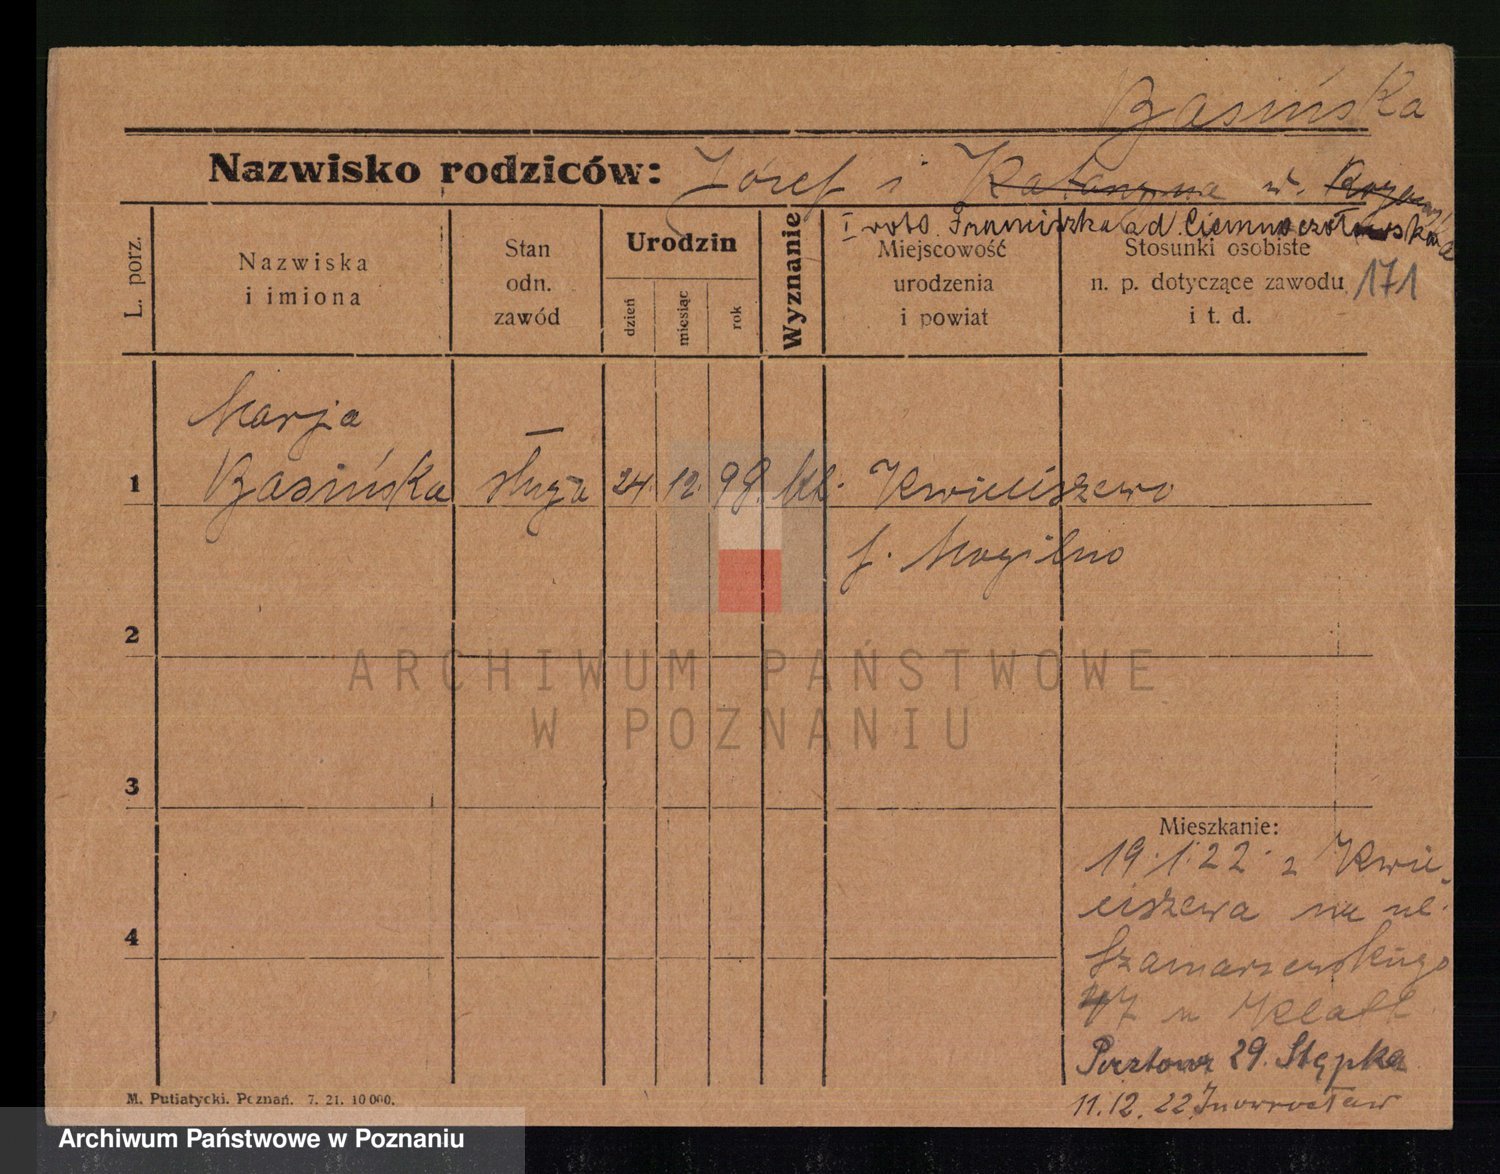 Basińska
Nazwisko rodziców: Józef i Katarzyna w.
I voto Franciszka zd. Ciemnoczołowska
L. porz.
Nazwiska
i imiona
Stan
odn.
zawód
Urodzin
dzień
miesiąc
rok
Wyznanie
Miejscowość
urodzenia
i powiat
Stosunki osobiste
n. p. dotyczące zawodu
i t. d.
171
Marja
1 Basińska służa 24 12. 98. kł. Kwieciszewo
p. Mogilno
2
3
4
Mieszkanie:
19.1.22. z Kwie-
ciszewa na ul.
Szamarzewskiego
47 u Klatt.
Pocztowa 29. Stępka
11.12.22. Inowrocław
M. Putiatycki. Poznań. 7. 21. 10 000.
ARCHIWUM PAŃSTWOWE
W POZNANIU
Archiwum Państwowe w Poznaniu